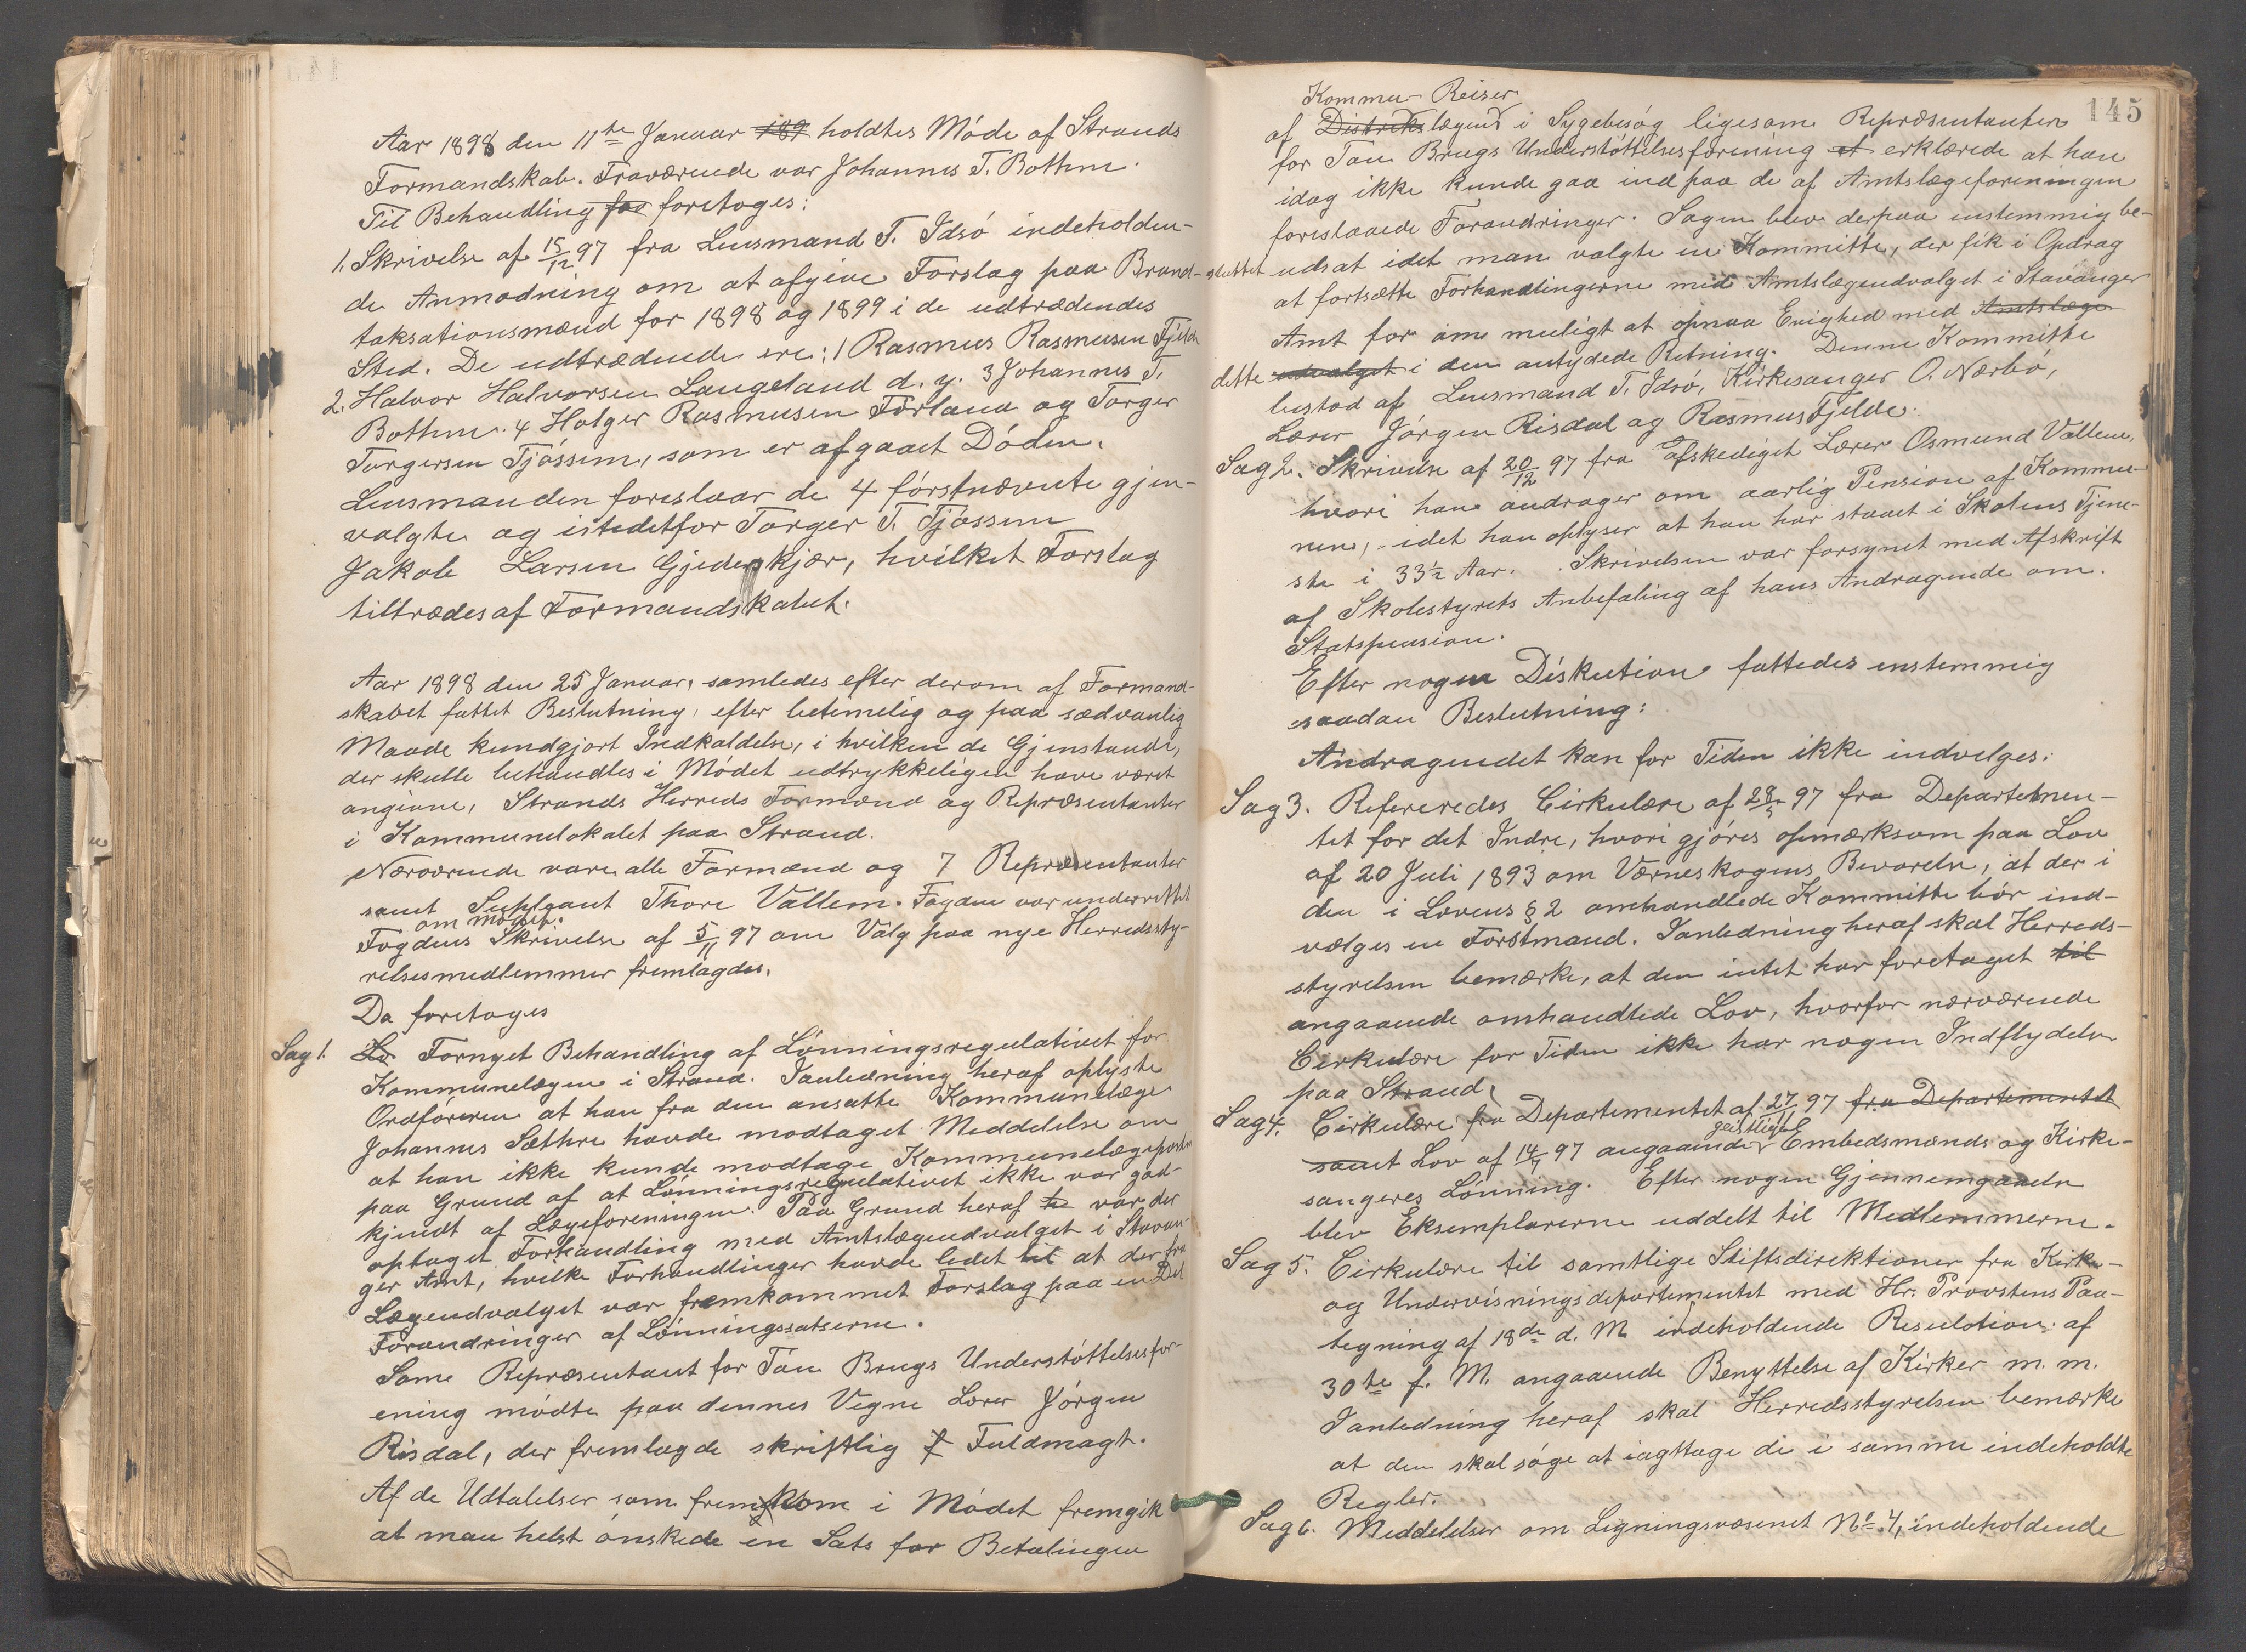 Aar 1898 den 11te Januar 189 holdtes Møde af Strands
Formandskab. Fraværende var Johannes T. Bothne.
Til Behandling foe foretoges:
1. Skrivelse af 15/12 97 fra Lensmand T. Idsø indeholden-
de Anmodning om at afgive Forslag paa Brand-
taksationsmænd for 1898 og 1899 i de udtrædendes
Sted. De udtrædende ere: 1 Rasmus Rasmusen Fjelde
2. Halvor Halvorsen Langeland d. y. 3 Johannes T.
Bothne. 4 Holger Rasmusen Førland og Torger
Torgersen Tjøssem, som er afgaaet Døden.
Lensmanden foreslaar de 4 førstnævnte gjen-
valgte og istedetfor Torger T. Tjøssem
Jakob Larsen Gjederskjær, hvilket Forslag
tiltrædes af Formandskabet.
Aar 1898 den 25 Januar, samledes efter derom af Formand-
skabet fattet Beslutning, efter betimelig og paa sædvanlig
Maade kundgjort Indkaldelse, i hvilken de Gjenstande,
der skulle behandles i Mødet udtrykkeligen have været
angivne, Strands Herreds Formænd og Repræsentanter
i Kommunelokalet paa Strand.
Nærværende vare alle Formænd og 7 Repræsentanter
samt Supleant Thore Vallem. Fogden var underrettet
om Mødet.
Fogdens Skrivelse af 5/11 97 om Valg paa nye Herredssty-
relsesmedlemmer fremlagdes.
Da foretoges
Sag 1. Lø Fornyet Behandling af Lønningsregulativet for
Kommunelægen i Strand. Ianledning heraf oplyste
Ordføreren at han fra den ansatte Kommunelæge
Johannes Sæthre havde modtaget Meddelelse om
at han ikke kunde modtage Kommunelægeposten
paa Grund af at Lønningsregulativet ikke var god-
kjendt af Lægeforeningen. Paa Grund heraf var der
optaget Forhandling med Amtslægeudvalget i Stavan-
ger Amt, hvilke Forhandlinger havde ledet til at der fra
Lægeudvalget var fremkommet Forslag paa en Del
Forandringer af Lønningssatserne.
Some Repræsentant for Tau Brugs Understøttelsesfor-
ening mødte paa dennes Vegne Lærer Jørgen
Risdal, der fremlagde skriftlig f Fuldmagt.
Af de Udtalelser som fremkom i Mødet fremgik
at man helst ønskede en Sats for Betalingen
145
Kommu- Reiser
af Distriktslægens i Sygebesøg ligesom Repræsentanten
for Tau Brugs Understøttelsesforening et erklærede at han
idag ikke kunde gaa ind paa de af Amtslægeforeningen
foreslaaede Forandringer. Sagen blev derpaa enstemmig be-
sluttet udsat idet man valgte en Kommitte, der fik i Opdrag
at fortsætte Forhandlingerne med Amtslægeudvalget i Stavanger
Amt for om muligt at opnaa Enighed med Amtslæge
dette udvalget i den antydede Retning. Denne Kommitte
bestod af Lensmand T. Idsø, Kirkesanger O. Nærbø,
Lærer Jørgen Risdal og Rasmus Fjelde.
Sag 2. Skrivelse af 20/12 97 fra afskediget Lærer Osmund Vallem,
hvori han andrager om aarlig Pension af Kommu-
nen, idet han oplyser at han har staaet i Skolens Tjene-
ste i 33½ Aar. Skrivelsen var forsynet med Afskrift
af Skolestyrets Anbefaling af hans Andragende om
Statspension.
Efter nogen Diskution fattedes enstemmig
saadan Beslutning:
Andragendet kan for Tiden ikke indvelges.
Sag 3. Refereredes Cirkulære af 28/5 97 fra Departemen-
tet for det Indre, hvori gjøres opmærksom paa Lov
af 20 Juli 1893 om Værneskogens Bevarelse, at der i
den i Lovens § 2 omhandlede Kommitte bør ind-
vælges en Forstmand. Ianledning heraf skal Herreds-
styrelsen bemærke, at den intet har foretaget til
angaaende omhandlede Lov, hvorfor nærværende
Cirkulære for Tiden ikke har nogen Indflydelse
paa Strand.
Sag 4. Cirkulære fra Departementet af 27/11 97 fra Departementet
geistlige
samt Lov af 14/7 97 angaaende Embedsmænds og Kirke-
sangeres Lønning. Efter nogen Gjennemgaaelse
blev Eksemplarerne uddelt til Medlemmerne.
Sag 5. Cirkulære til samtlige Stiftsdirektioner fra Kirke-
og Undervisningsdepartementet med Hr. Provstens Paa-
tegning af 18de d. M. indeholdende Resulotion af
30te f. M. angaaende Benyttelse af Kirker m. m.
Ianledning heraf skal Herredsstyrelsen bemærke
at den skal søge at iagttage de i samme indeholdte
Regler.
Sag 6. Meddelelser om Ligningsvæsenet No. 4, indeholdende